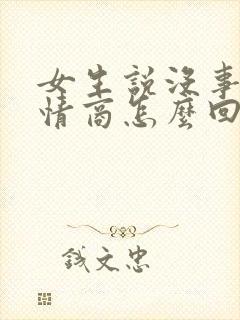 女生說沒事
情商怎麼回
錢文忠